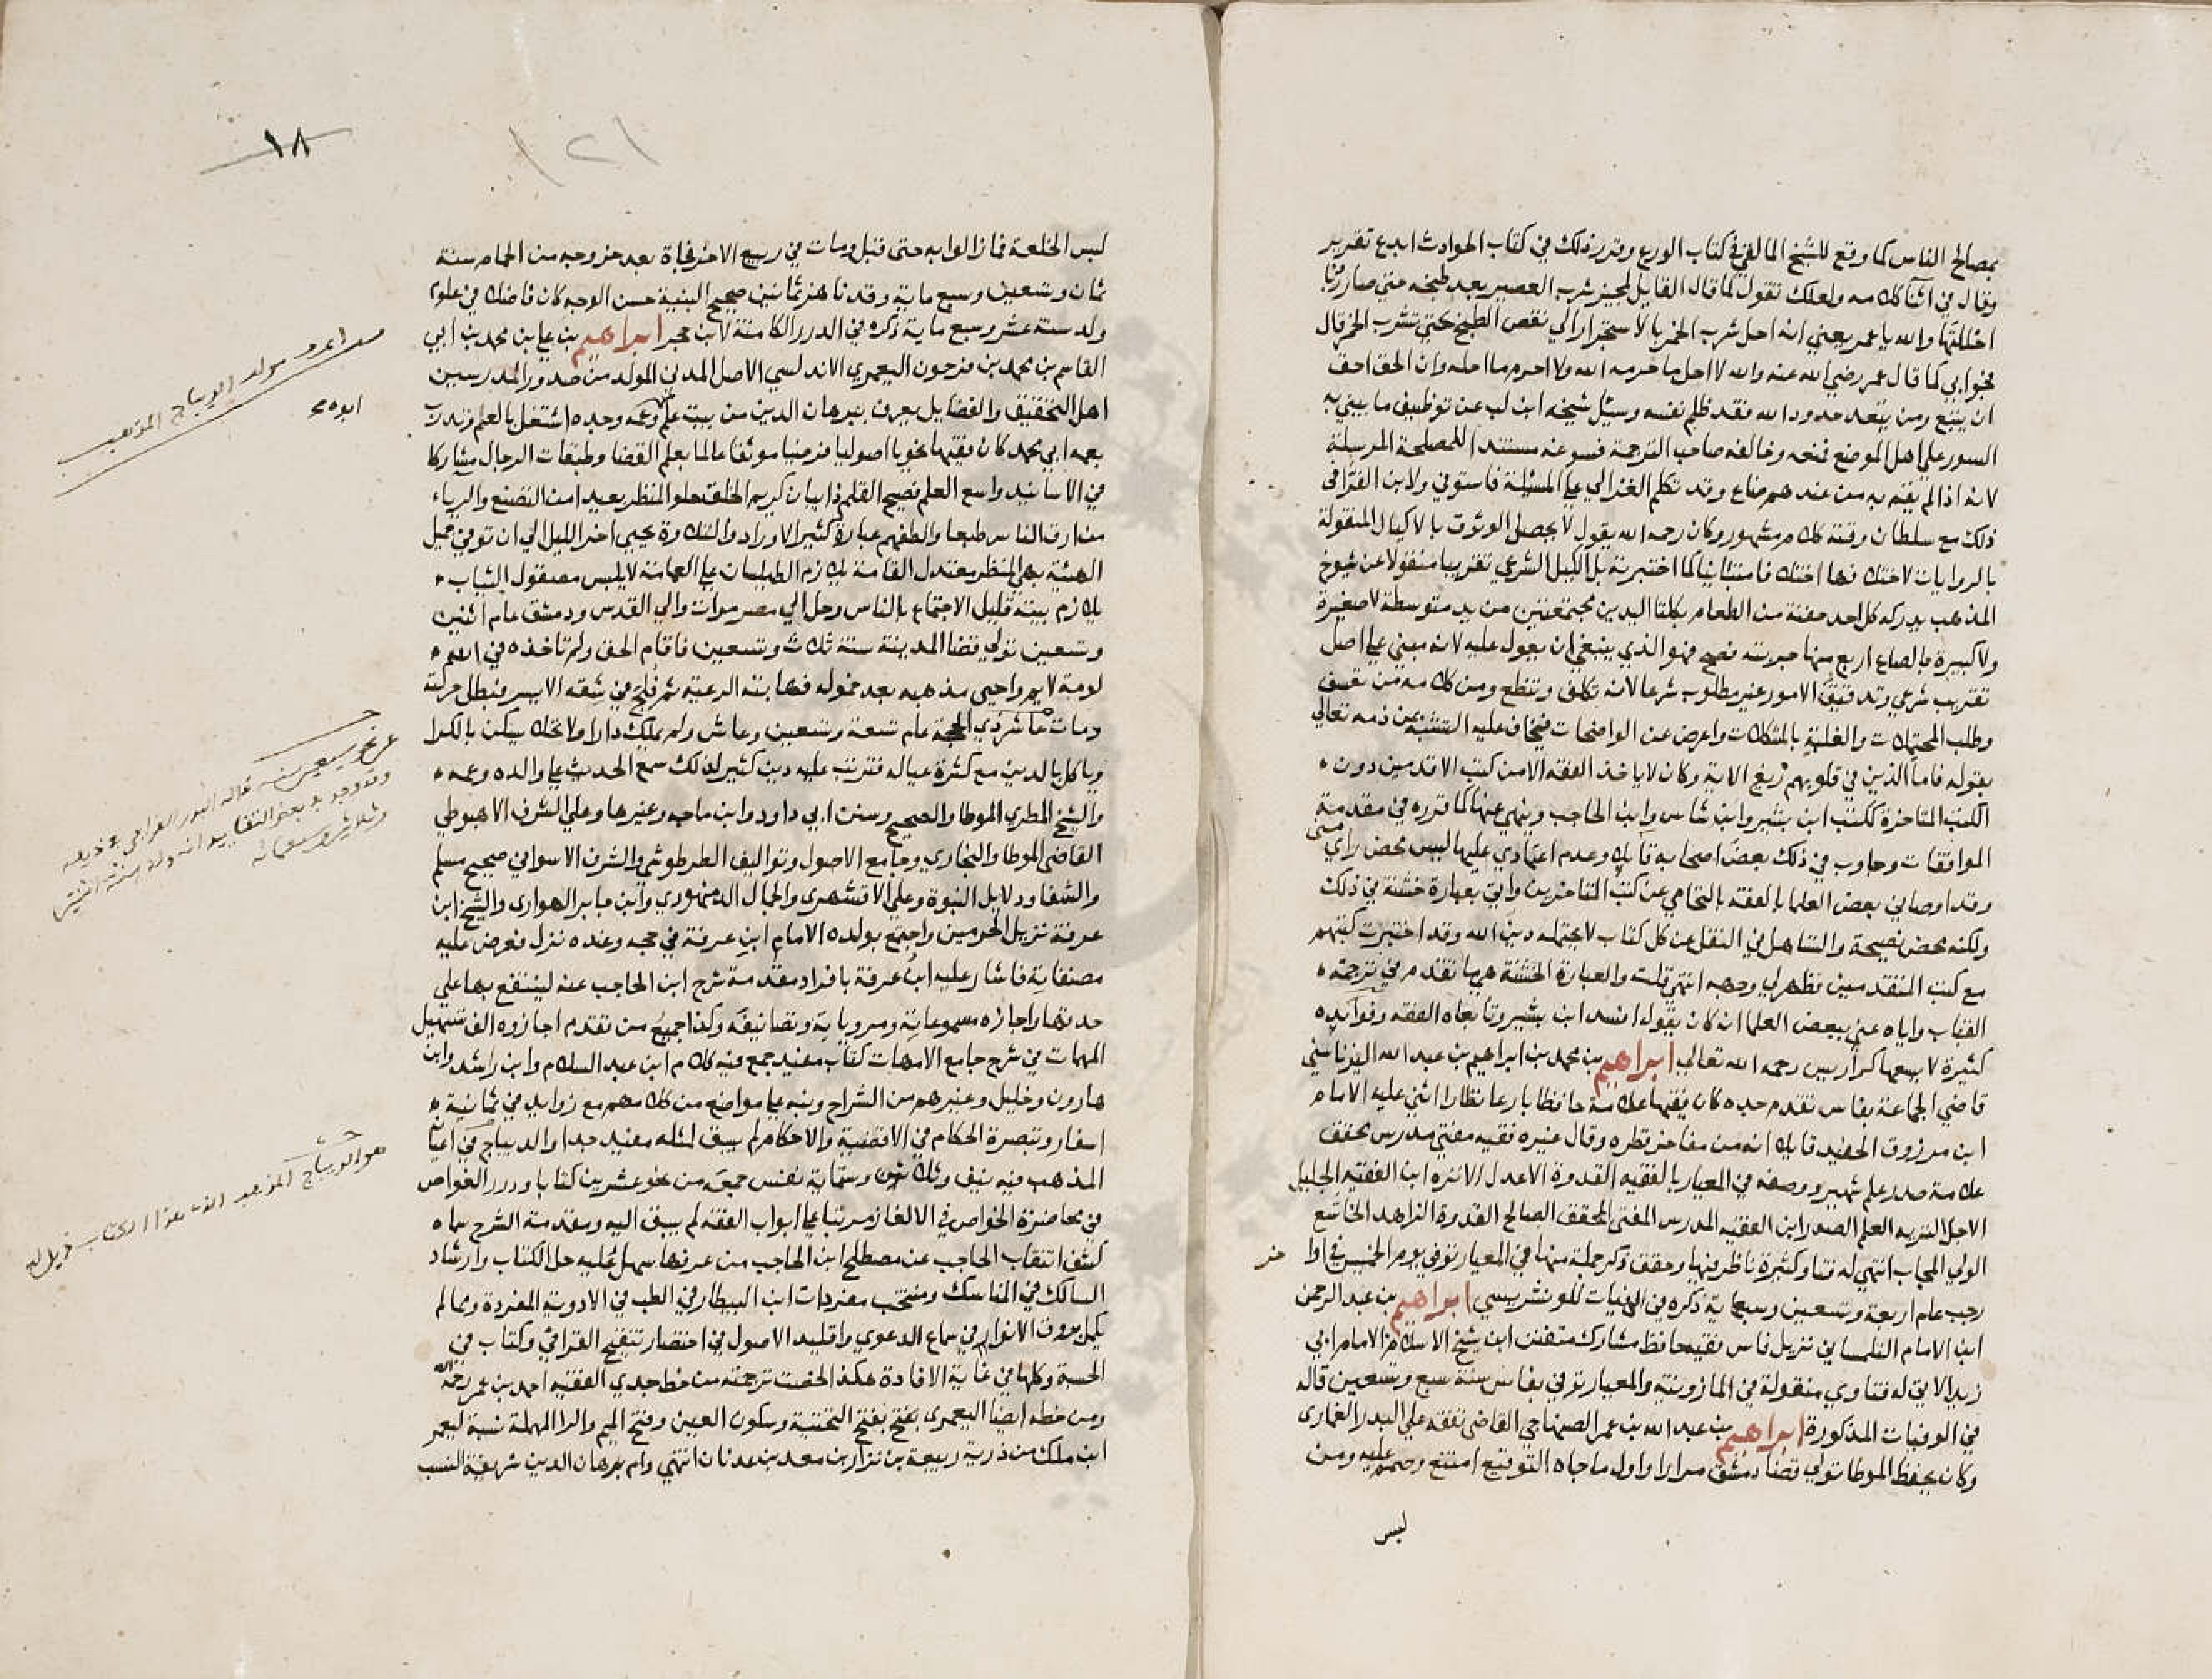 بمصالح الناس كما وقع للشيخ المالقي في كتاب الورع وقد رد ذلك في كتاب الحوادث ابدع تقرير
وقال في اثنا كلامه ولعلك تقول كما قال القايل لمجيز شرب العصير بعد طبخه حتى صار ربا
احللتها والله يا عمر يعني انه احل شرب الخمر بالاستجرار الي نقص الطبخ حتى تشرب الخمر قال
فجوابي كما قال عمر رضي الله عنه والله لا احل ما حرمه الله ولا احرم ما احله وان الحق احق
ان يتبع ومن يتعد حدود الله فقد ظلم نفسه وسئل شيخه ابن لب عن توظيف ما يبني به
السور علي اهل الموضع فمنعه وخالفه صاحب الترجمة فسوغه مستندا للمصلحة المرسلة
لانه اذا لم يقم به من عندهم ضاع وقد تكلم الغزالي علي المسئلة فاستوفي ولابن الفرا في
ذلك مع سلطان وقته كلام مشهور وكان رحمه الله يقول لا يحصل الوثوق بالاكيال المنقولة
بالروايات لاختلافها اختلافا متباينا كما اختبرته بل الكيل الشرعي تقريبا منقولا عن شيوخ
المذهب يدركه كل احد حفنة من الطعام بكلتا اليدين مجتمعتين من يد متوسطة لا صغيرة
ولا كبيرة فالصاع اربع منها جربته فصح فهو الذي ينبغي ان يعول عليه لانه مبني علي اصل
تقريب شرعي وتدقيق الامور غير مطلوب شرعا لانه تكلف وتنطع ومن كلامه من تعسف
وطلب المحتملات والغلبة بالمشكلات واعرض عن الواضحات فيخاف عليه التشبه بمن ذمه تعالي
بقوله فاما الذين في قلوبهم زيغ الاية وكان لا ياخذ الفقه الا من كتب الاقدمين دون
الكتب المتاخرة ككتب ابن بشير وابن شاس وابن الحاجب وينهي عنها كما قرره في مقدمة
الموافقات وجاوب في ذلك بعض اصحابه قايلا وعدم اعتمادي عليها ليس محض راي مني
وقد اوصاني بعض العلما بالفقه بالتحامي عن كتب المتاخرين واتي بعبارة خشنة في ذلك
ولكنه محض نصيحة والتساهل في النقل عن كل كتاب لا يحتمله دين الله وقد اختبرت كتبهم
مع كتب المتقدمين فظهر لي وجهه انتهي قلت والعبارة الخشنة هي ما تقدم في ترجمة
القباب واياه عني ببعض العلما ان كان يقول افسد ابن بشير وتابعاه الفقه وفوايده
كثيرة لا يسعها كراريس رحمه الله تعالي ابراهيم بن محمد بن ابراهيم بن عبد الله اليزناسني
قاضي الجماعة بفاس تقدم جده كان فقيها علامة حافظا بارعا نظارا اثني عليه الامام
ابن مرزوق الحفيد قايلا انه من مفاخر قطره وقال غيره فقيه مفتي مدرس محقق
علامة صدر علم شهير ووصفه في المعيار بالفقيه القدوة الاعدل الانزه ابن الفقيه الجليل
الاجل النزيه العلم الصدر ابن الفقيه المدرس المفتي المحقق الصالح القدوة الزاهد الخاشع
الولي المجاب انتهي له فتاو كثيرة ناظر فيها وحقق ذكر جملة منها في المعيار توفي يوم الخميس في اواخر
رجب عام اربعة وتسعين وسبعماية ذكره في الوفيات للونشريسي ابراهيم بن عبد الرحمن
ابن الامام التلمساني نزيل فاس فقيه حافظ مشارك متفنن ابن شيخ الاسلام الامام ابي
زيد الاتي له فتاوي منقولة في المازونية والمعيار توفي بفاس سنة سبع وتسعين قاله
في الوفيات المذكورة ابراهيم بن عبد الله بن عمر الصنهاجي القاضي تفقه علي البدر الغماري
وكان يحفظ الموطا تولي قضا دمشق مرارا واول ما جاه التوقيع امتنع وصمم عليه ومن
لبس
١٨
١٢١
لبس الخلعة فما زالوا به حتى قبل ومات في ربيع الاخر فجاة بعد خروجه من الحمام سنة
ثمان وتسعين وسبع ماية وقد ناهز ثمانين صحيح البنية حسن الوجه كان فاضلا في علوم
ولد سنة عشر وسبع ماية ذكره في الدرر الكامنة لابن حجر ابراهيم بن علي بن محمد بن ابي
القاسم بن محمد بن فرحون اليعمري الاندلسي الاصل المدني المولد من صدور المدرسين
اهل التحقيق والفضايل يعرف ببرهان الدين من بيت علم وعمه وجده اشتغل بالعلم وتدرب
بعمه ابي محمد كان فقيها نحويا اصوليا فرضيا موثقا عالما بعلم القضا وطبقات الرجال مشاركا
في الاسانيد واسع العلم فصيح القلم ذا بيان كريم الخلق حلو المنظر بعيدا من التصنع والرياء
من ارق الناس طبعا والطفهم عبارة كثير الاوراد والتلاوة يحيي اخر الليل الي ان توفي جميل
الهيئة بهي المنظر معتدل القامة يلازم الطيلسان علي العمامة لا يلبس مصقول الثياب
يلازم بيته قليل الاجتماع بالناس رحل الي مصر مرات والي القدس ودمشق عام اثنين
وتسعين تولي قضا المدينة سنة ثلاث وتسعين فاقام الحق ولم تاخذه في الله
لومة لايم واحيي مذهبه بعد خموله فهابته الرعية ثم فلج في شقه الايسر فبطل حركته
ومات عاشر ذي الحجة عام تسعة وتسعين وعاش ولم يملك دارا ولا نخلا يسكن بالكرا
وياكل بالدين مع كثرة عياله فترتب عليه دين كثير لذلك سمع الحديث علي والده وعمه
والشيخ المطري الموطا والصحيح وسنن ابي داود وابن ماجه وغيرها وعلي الشرف الاهبوطي
القاضي الموطا والبخاري وجامع الاصول وتواليف الطرطوشي والشرف الاسواني صحيح مسلم
والشفا ودلايل النبوة وعلي الاقشهري والجمال الدمنهوري وابن جابر الهواري والشيخ ابن
عرفة نزيل الحرمين واجتمع بولده الامام ابن عرفة في حجه وعنده نزل فعرض عليه
مصنفاته فاشار عليه ابن عرفة بافراد مقدمة شرح ابن الحاجب عنه لينتفع بها علي
حدتها واجازه مسموعاته ومروياته وتصانيفه وكذا جميع من تقدم اجازوه الف تسهيل
المهمات في شرح جامع الامهات كتاب مفيد جمع فيه كلام ابن عبد السلام وابن راشد وابن
هارون وخليل وغيرهم من الشراح ونبه علي مواضع من كلامهم مع زوايد في ثمانية
اسفار وتبصرة الحكام في الاقضية والاحكام لم يسبق لمثله مفيد جدا والديباج في اعيان
المذهب فيه نيف وثلاثون وستماية نفس جمعه من نحو عشرين كتابا ودرر الغواص
في محاضرة الخواص في الالغاز مرتبا علي ابواب الفقه لم يسبق اليه ومقدمة الشرح سماه
كشف النقاب الحاجب عن مصطلح ابن الحاجب من عرفها سهل عليه حل الكتاب وارشاد
السالك في المناسك ومنتخب مفردات ابن البيطار في الطب في الادوية المفردة ومما لم
يكمل بروق الانوار في سماع الدعوي واقليد الاصول في اختصار تنقيح القرافي وكتاب في
الحسبة وكلها في غاية الافادة هكذا لخصت ترجمته من خط جدي الفقيه احمد بن عمر رحمه الله
ومن خطه ايضا اليعمري بفتح التحتية وسكون العين وفتح الميم والرا المهملة نسبة ليعمر
ابن ملك من ذرية ربيعة بن نزار بن معد بن عدنان انتهي وام برهان الدين شريفة النسب
اعرف مولد الديباج المذهب
عن نحو سبعين سنة قاله البدر القرافي في ذيله
وقد وجد في بعض التقاييد انه ولد سنة
وثلاثين وسبعمائة
هو الديباج المذهب الذي هذا الكتاب ذيل له